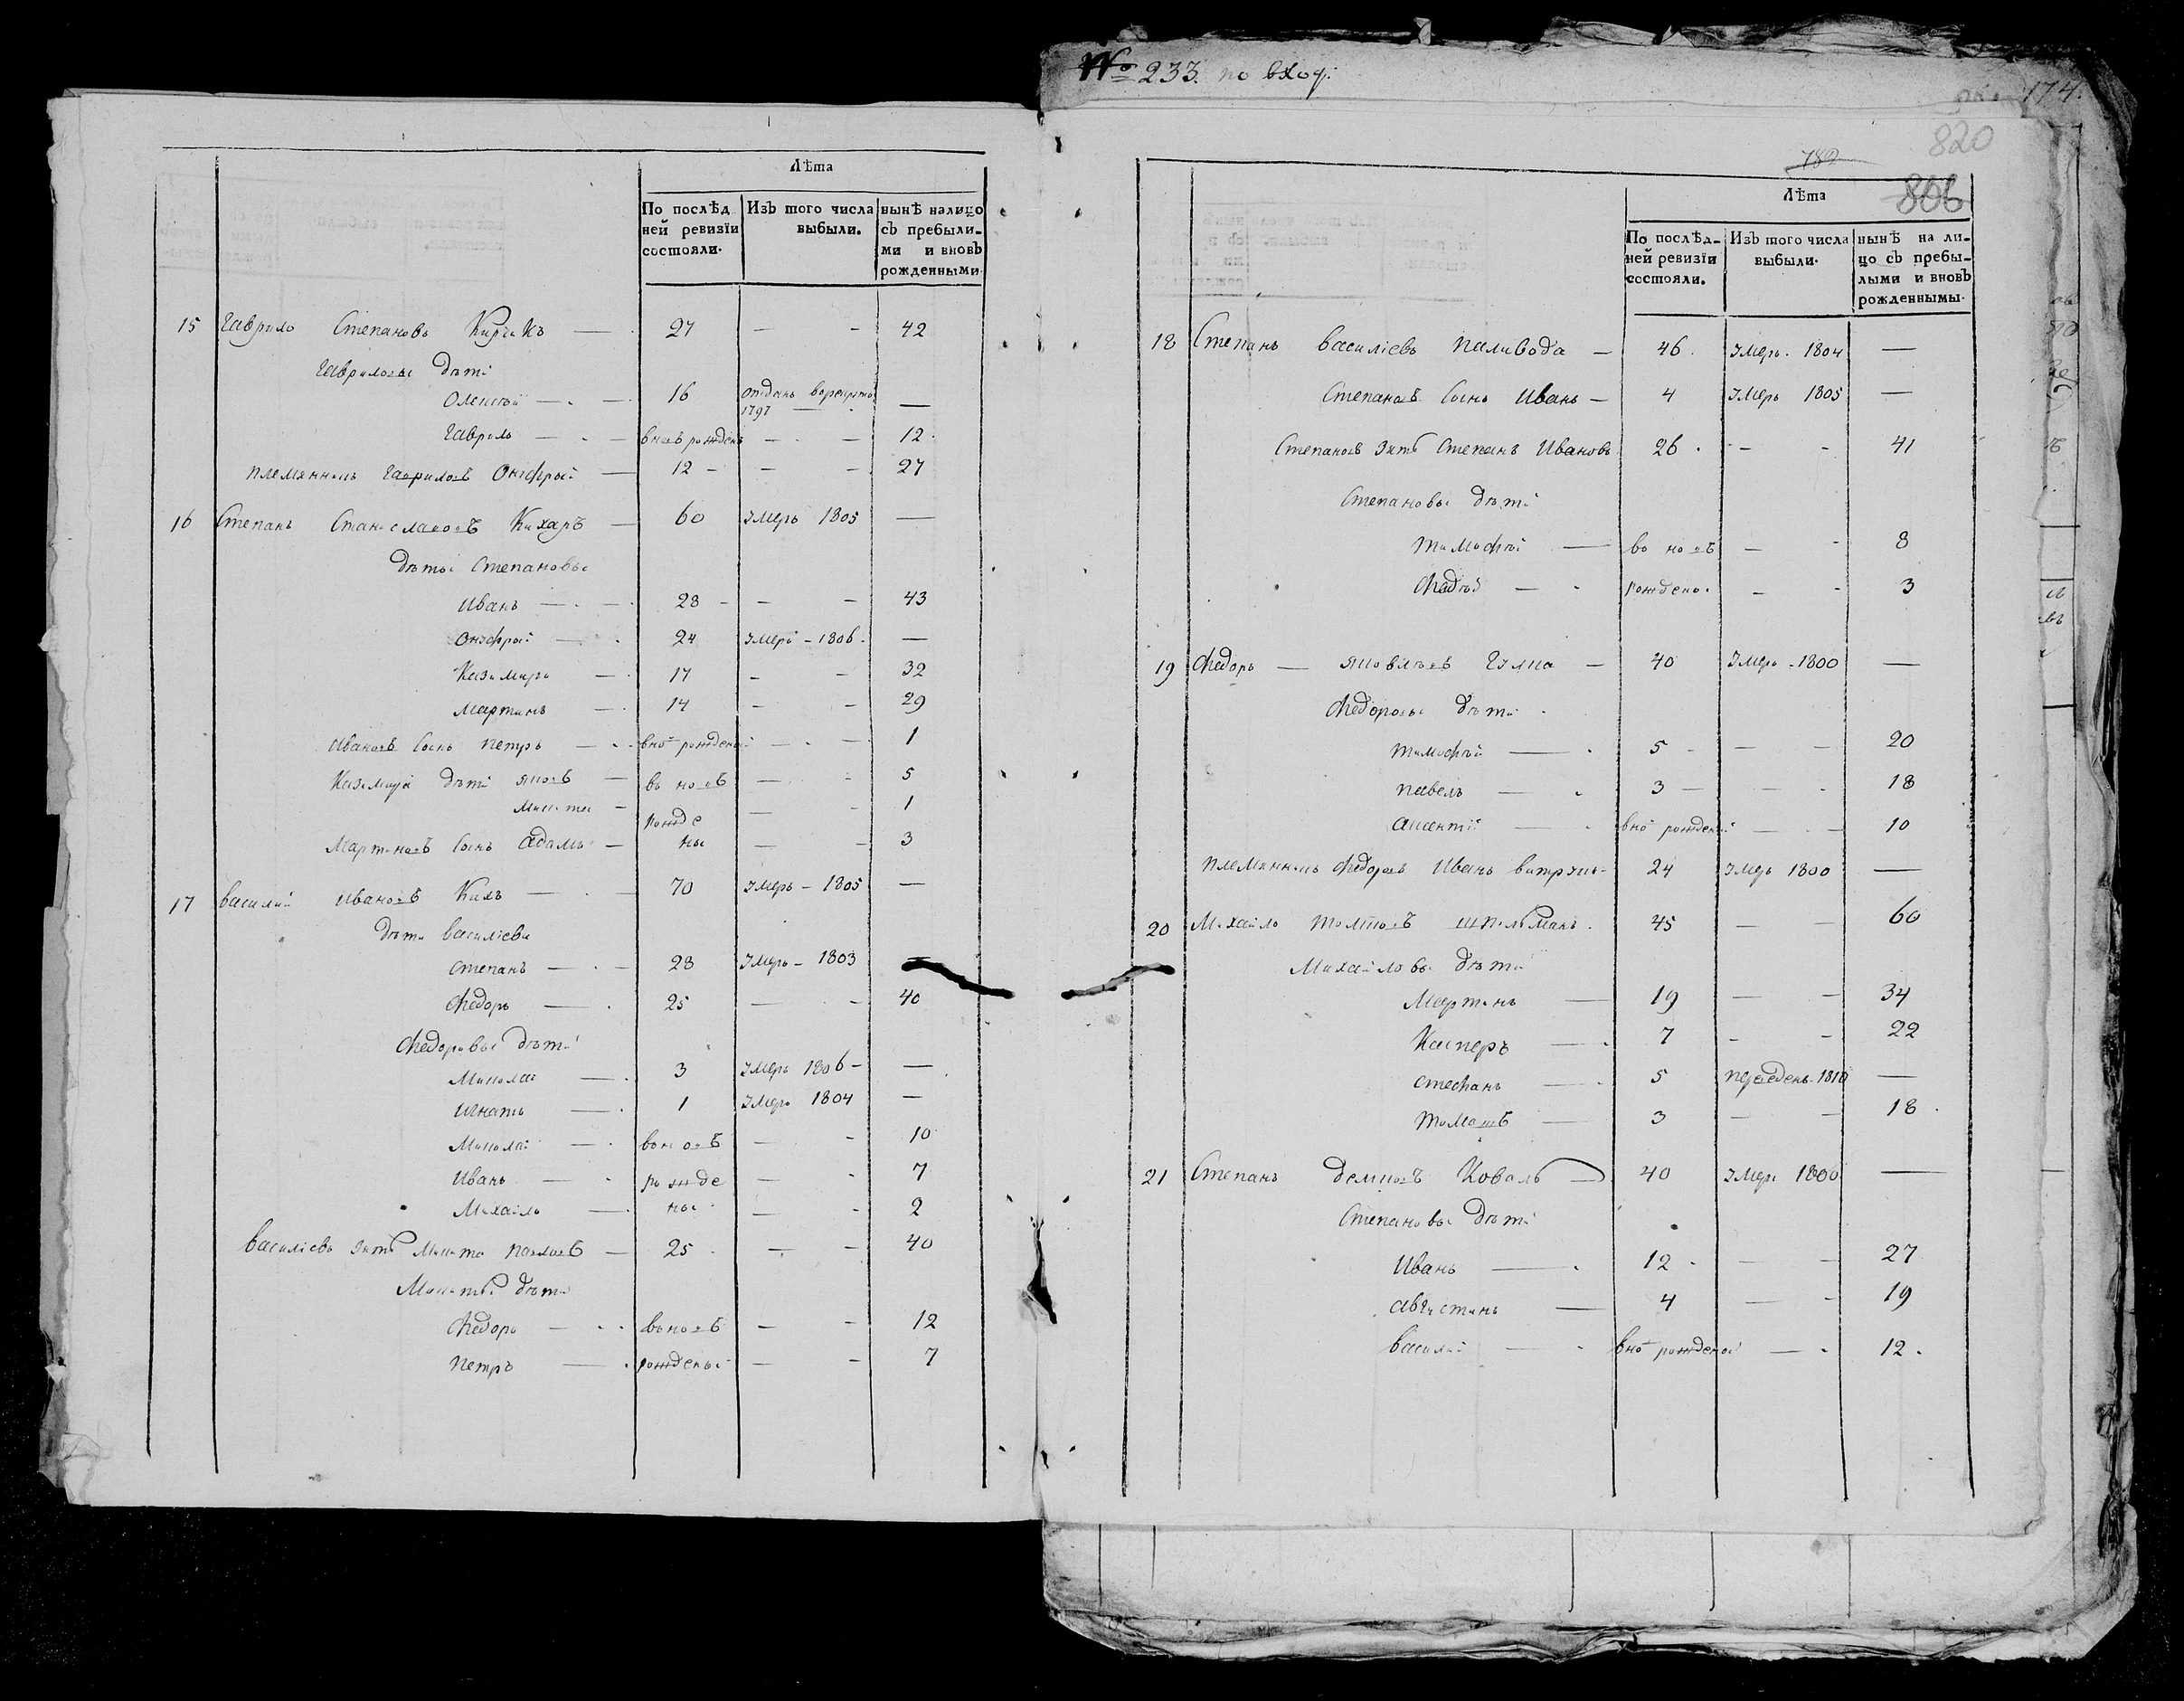 № 233. по вход:
174.
820
789
806
Лѣта
По послѣд ней ревизїи состояли.
Изъ того числа выбыли.
нынѣ налицо съ пребылими и вновъ рожденными.
15 Гаврило Степановъ — 27 — - 42
Гавриловы Дѣти
Олексѣй — . — 16 отданъ 1797 — —
Гаврило — . — вновъ рожденъ — . — 12.
племянникъ Гавриловъ Онофрый — 12 - - - 27
16 Степанъ Станиславовъ — 60 Умеръ 1805 —
Дѣты Степановы
Иванъ — . — . 28 - - — 43
Онофрый — . 24 Умеръ - 1806. —
Казимиръ — . 17 - — 32
Мартинъ — . 14 - — 29
Ивановъ Сынъ Петръ — . . вно рожденый — . — 1
Казимира дѣти Яковъ — въ новѣ — - 5
Микита — рожде — - 1
Мартиновъ Сынъ Адамъ — ны — - 3
17 Василий Ивановъ — . — 70 Умеръ - 1805 —
Дѣти Василіевы
Степанъ — . — 28 Умеръ - 1803 —
Федоръ — . 25 — - 40
Федоровы Дѣти
Миколай — . 3 Умеръ 1806 - —
Игнатъ — . 1 Умеръ 1804 —
Миколай — . въновѣ — - 10
Иванъ — . рожде — - 7
Михайло — . ны — - 2
Василіевъ Зять Микита Павловъ — 25 . — - 40
Микиты Дѣти
Федоръ — . . въновѣ — - 12
Петръ — . рожденый — - 7
Лѣта
По послѣд- ней ревизїи состояли.
Изъ того числа выбыли.
нынѣ на ли- цо съ пребы- лыми и вновъ рожденнымы.
18 Степанъ Василіевъ Паливода — 46. Умеръ. 1804 —
Степановъ Сынъ Иванъ — 4 Умеръ 1805 —
Степановъ Зять Степанъ Ивановъ 26 . - - 41
Степановы Дѣти
Тимофѣй — во новѣ — - 8
Фадѣй — . рождены. - - 3
19 Федоръ — Яковлевъ — 40 Умеръ - 1800 —
Федоровы Дѣти .
Тимофѣй — . 5 - — — 20
Павелъ — . 3 — — . 18
— . вно рожденый — . — 10
племянникъ Федоровъ Иванъ 24 Умеръ 1800 —
20 Михайло Томковъ Шпильманъ . 45 — — 60
Михайловы Дѣти
Мартинъ — 19 — — 34
Касперъ — . 7 - - 22
Стефанъ — . 5 1810 —
Томашъ — 3 — — 18 .
21 Степанъ Демковъ Коваль — 40 Умеръ 1800 —
Степановы Дѣти
Иванъ — . 12 . — — 27
Августинъ — 4 — - 19
Василий — . вно рожденой — . 12 .